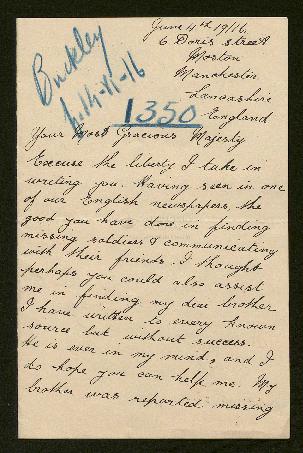 June 4th 1916.
6 Doris street
Moston
Manchester
Lancashire
England
Buckley
14-11-16
1350
Your Most Gracious Majesty
Excuse the liberty I take in
writing you. Having seen in one
of our English newspapers, the
good you have done in finding
missing soldiers & communicating
with their friends. I thought
perhaps you could also assist
me in finding my dear brother
I have written to every known
source but without success.
He is ever in my mind, and I
do hope you can help me. My
brother was reported missing